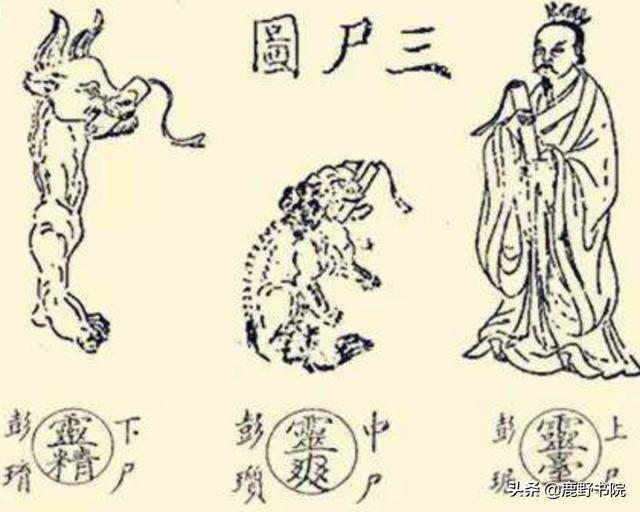 三尸圖
上尸
靈臺
彭
中尸
靈爽
彭
下尸
靈精
彭
头条 @鹿野书院